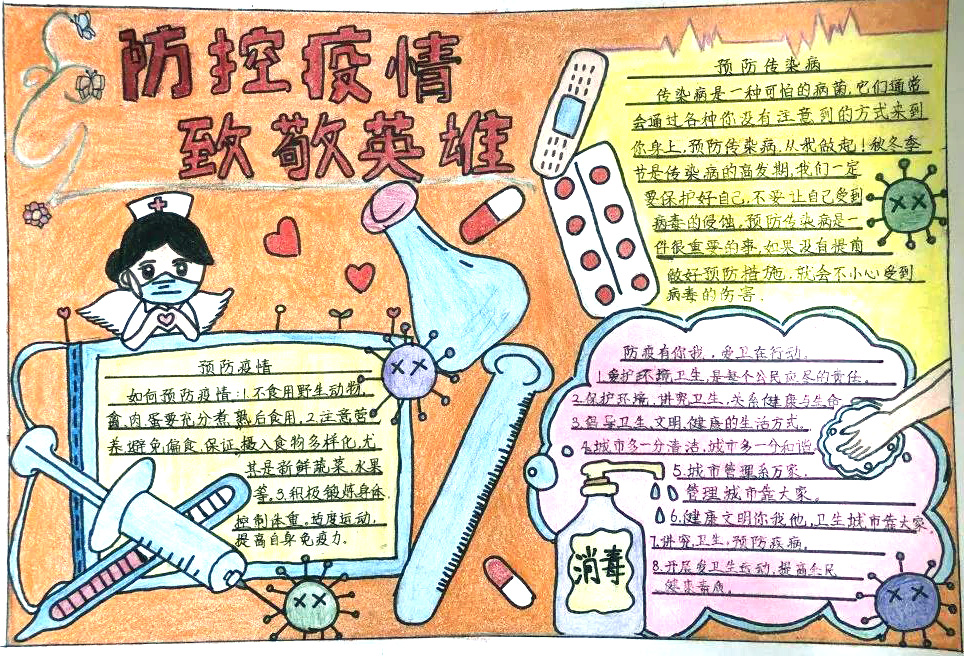 防控疫情
致敬英雄
预防传染病
传染病是一种可怕的病菌,它们通常
会通过各种你没有注意到的方式来到
你身上,预防传染病,从我做起!秋冬季
节是传染病的高发期,我们一定
要保护好自己,不要让自己受到
病毒的侵蚀。预防传染病是一
件很重要的事,如果没有提前
做好预防措施,就会不小心受到
病毒的伤害.
预防疫情
如何预防疫情:1.不食用野生动物,
禽,肉,蛋要充分煮熟后食用.2.注意营
养避免偏食,保证摄入食物多样化,尤
其是新鲜蔬菜,水果
等。3.积极锻炼身体,
控制体重。适度运动,
提高自身免疫力。
防疫有你我,爱卫在行动.
1.爱护环境卫生,是每个公民应尽的责任。
2.保护环境,讲究卫生,关系健康与生命
3.倡导卫生文明,健康的生活方式。
4.城市多一分清洁,城市多一分和谐
5.城市管理系万家,
管理城市靠大家。
6.健康文明你我他,卫生城市靠大家
7.讲究卫生,预防疾病。
8.开展爱卫生运动,提高全民
健康素质。
消毒